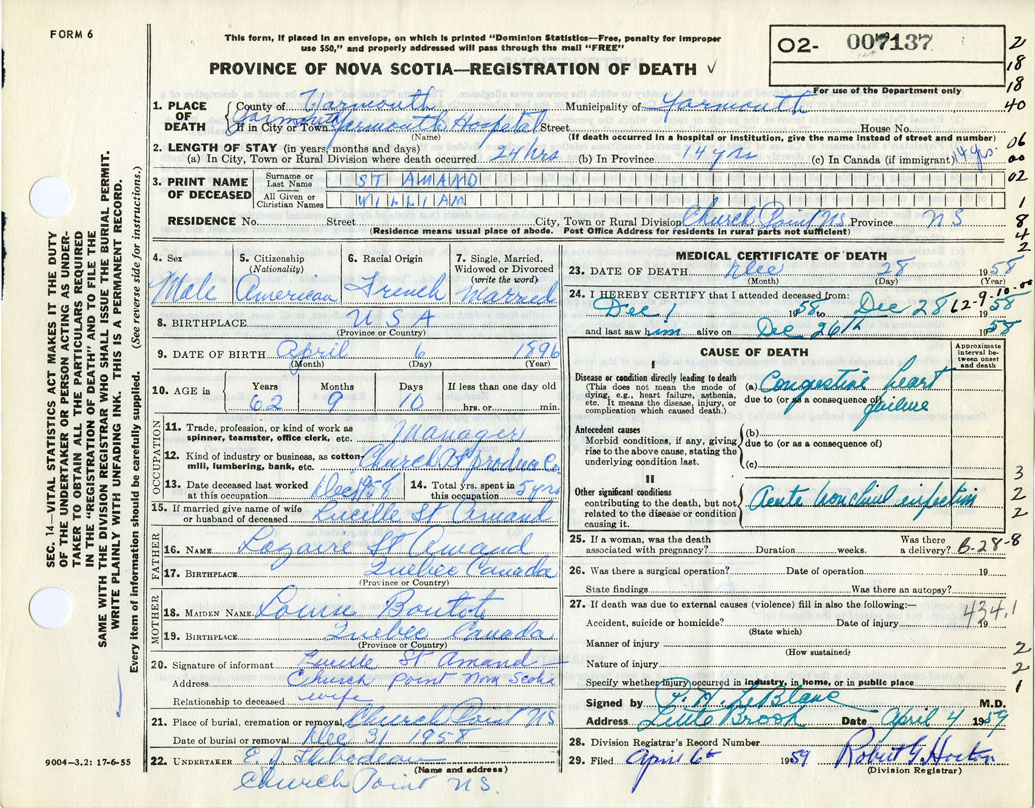 FORM 6
This form, if placed in an envelope, on which is printed "Dominion Statistics—Free, penalty for improper
use $50," and properly addressed will pass through the mail "FREE"
PROVINCE OF NOVA SCOTIA—REGISTRATION OF DEATH ✓
O2- 007137
For use of the Department only
2
18
18
40
06
00
02
1
8
4
2
SEC. 14—VITAL STATISTICS ACT MAKES IT THE DUTY
OF THE UNDERTAKER OR PERSON ACTING AS UNDER-
TAKER TO OBTAIN ALL THE PARTICULARS REQUIRED
IN THE "REGISTRATION OF DEATH" AND TO FILE THE
SAME WITH THE DIVISION REGISTRAR WHO SHALL ISSUE THE BURIAL PERMIT.
WRITE PLAINLY WITH UNFADING INK. THIS IS A PERMANENT RECORD.
Every item of information should be carefully supplied. (See reverse side for instructions.)
1. PLACE OF DEATH
County of Yarmouth Municipality of Yarmouth
(Name)
Yarmouth
If in City or Town Yarmouth Hospital Street House No.
(Name) (If death occurred in a hospital or institution, give the name instead of street and number)
2. LENGTH OF STAY (in years, months and days)
(a) In City, Town or Rural Division where death occurred 24 hrs (b) In Province 14 yrs (c) In Canada (if immigrant) 14 yrs.
3. PRINT NAME OF DECEASED
Surname or Last Name ST AMAND
All Given or Christian Names WILLIAM
RESIDENCE No. Street City, Town or Rural Division Church Point N.S. Province NS
(Residence means usual place of abode. Post Office Address for residents in rural parts not sufficient)
4. Sex Male
5. Citizenship (Nationality) American
6. Racial Origin French
7. Single, Married, Widowed or Divorced (write the word) Married
8. BIRTHPLACE USA
(Province or Country)
9. DATE OF BIRTH April 6 1896
(Month) (Day) (Year)
10. AGE in Years Months Days If less than one day old
62 9 10 hrs. or min.
OCCUPATION
11. Trade, profession, or kind of work as spinner, teamster, office clerk, etc. Manager
12. Kind of industry or business, as cotton-mill, lumbering, bank, etc. Church Pt produce Co.
13. Date deceased last worked at this occupation Dec 1958
14. Total yrs. spent in this occupation 5 yrs
15. If married give name of wife or husband of deceased Lucille St Amand
FATHER
16. NAME Lazaire St Amand
17. BIRTHPLACE Quebec Canada
(Province or Country)
MOTHER
18. MAIDEN NAME Louise Boutot
19. BIRTHPLACE Quebec Canada
(Province or Country)
20. Signature of informant Lucille St Amand
Address Church Point Nova Scotia
Relationship to deceased wife
21. Place of burial, cremation or removal Church Point N.S.
Date of burial or removal Dec 31 1958
22. UNDERTAKER E. J. Thibodeau
(Name and address)
Church Point N.S.
9004—3.2: 17-6-55
MEDICAL CERTIFICATE OF DEATH
23. DATE OF DEATH Dec 28 1958
(Month) (Day) (Year)
24. I HEREBY CERTIFY that I attended deceased from:
Dec 1 1958 to Dec 28 1958
62-9-10.00
and last saw him alive on Dec 26th 1958
CAUSE OF DEATH
Approximate interval between onset and death
I
Disease or condition directly leading to death
(This does not mean the mode of dying, e.g., heart failure, asthenia, etc. It means the disease, injury, or complication which caused death.)
(a) Congestive heart failure
due to (or as a consequence of)
Antecedent causes
Morbid conditions, if any, giving rise to the above cause, stating the underlying condition last.
(b)
due to (or as a consequence of)
(c)
II
Other significant conditions
contributing to the death, but not related to the disease or condition causing it.
Acute bronchial infection
3
2
2
25. If a woman, was the death associated with pregnancy? Duration weeks. Was there a delivery?
B-28-8
26. Was there a surgical operation? Date of operation 19
State findings Was there an autopsy?
27. If death was due to external causes (violence) fill in also the following:—
434.1
Accident, suicide or homicide? Date of injury 19
(State which)
Manner of injury
(How sustained)
Nature of injury
Specify whether injury occurred in industry, in home, or in public place
2
2
1
Signed by P. H. LeBlanc M.D.
Address Little Brook Date April 4 1959
28. Division Registrar's Record Number
29. Filed April 6th 1959 Robert G. Horton
(Division Registrar)